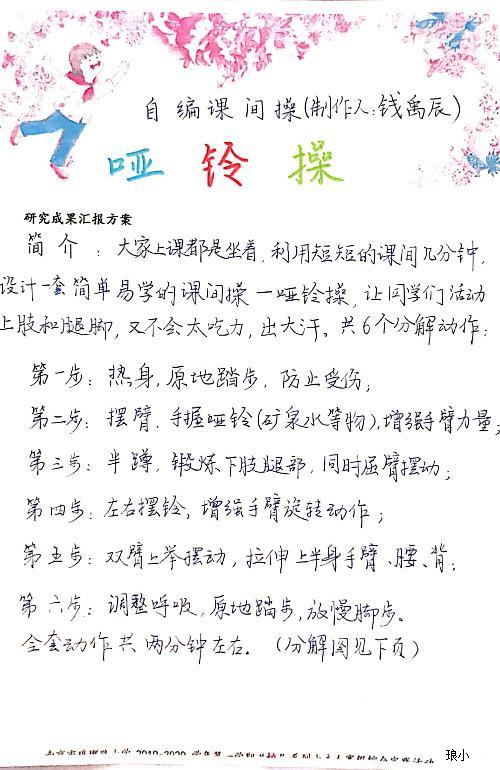 自编课间操(制作人:钱禹辰)
哑铃操
研究成果汇报方案
简介:大家上课都是坐着,利用短短的课间几分钟,
设计一套简单易学的课间操一哑铃操,让同学们活动
上肢和腿脚,又不会太吃力,出大汗。共6个分解动作:
第一步:热身,原地踏步,防止受伤;
第二步:摆臂,手握哑铃(矿泉水等物),增强手臂力量;
第三步:半蹲,锻炼下肢腿部,同时屈臂摆动;
第四步:左右摆铃,增强手臂旋转动作;
第五步:双臂上举摆动,拉伸上半身手臂、腰、背;
第六步:调整呼吸,原地踏步,放慢脚步。
全套动作共两分钟左右。(分解图见下页)
琅小